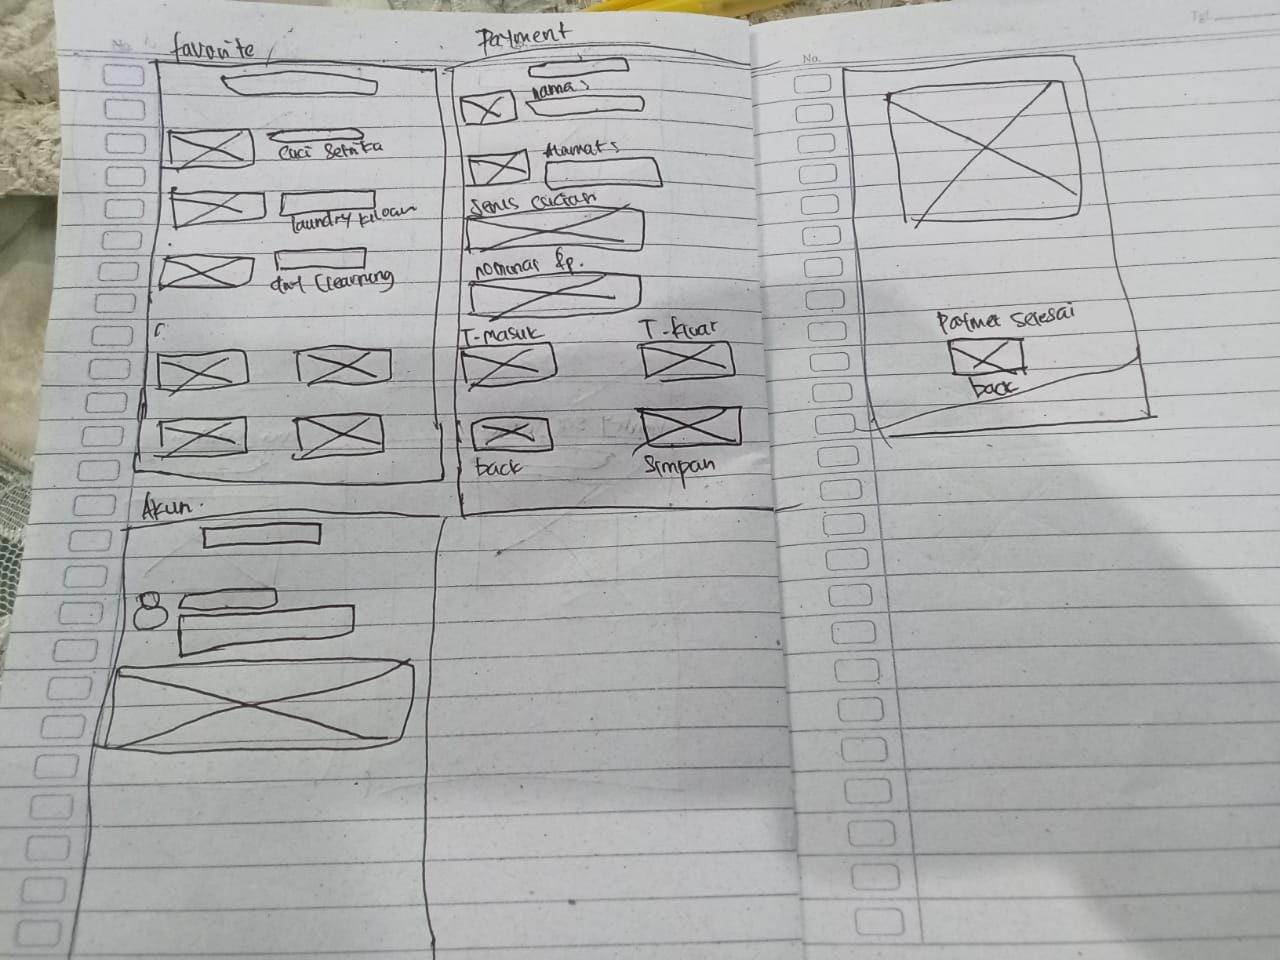 favorite
Cuci Setrika
laundry kiloan
Payment
nama:
Alamat:
Jenis Cucian
nominal Rp.
T-masuk
T-kluar
back
Simpan
Akun.
No.
Tgl.
Paymet Selesai
back